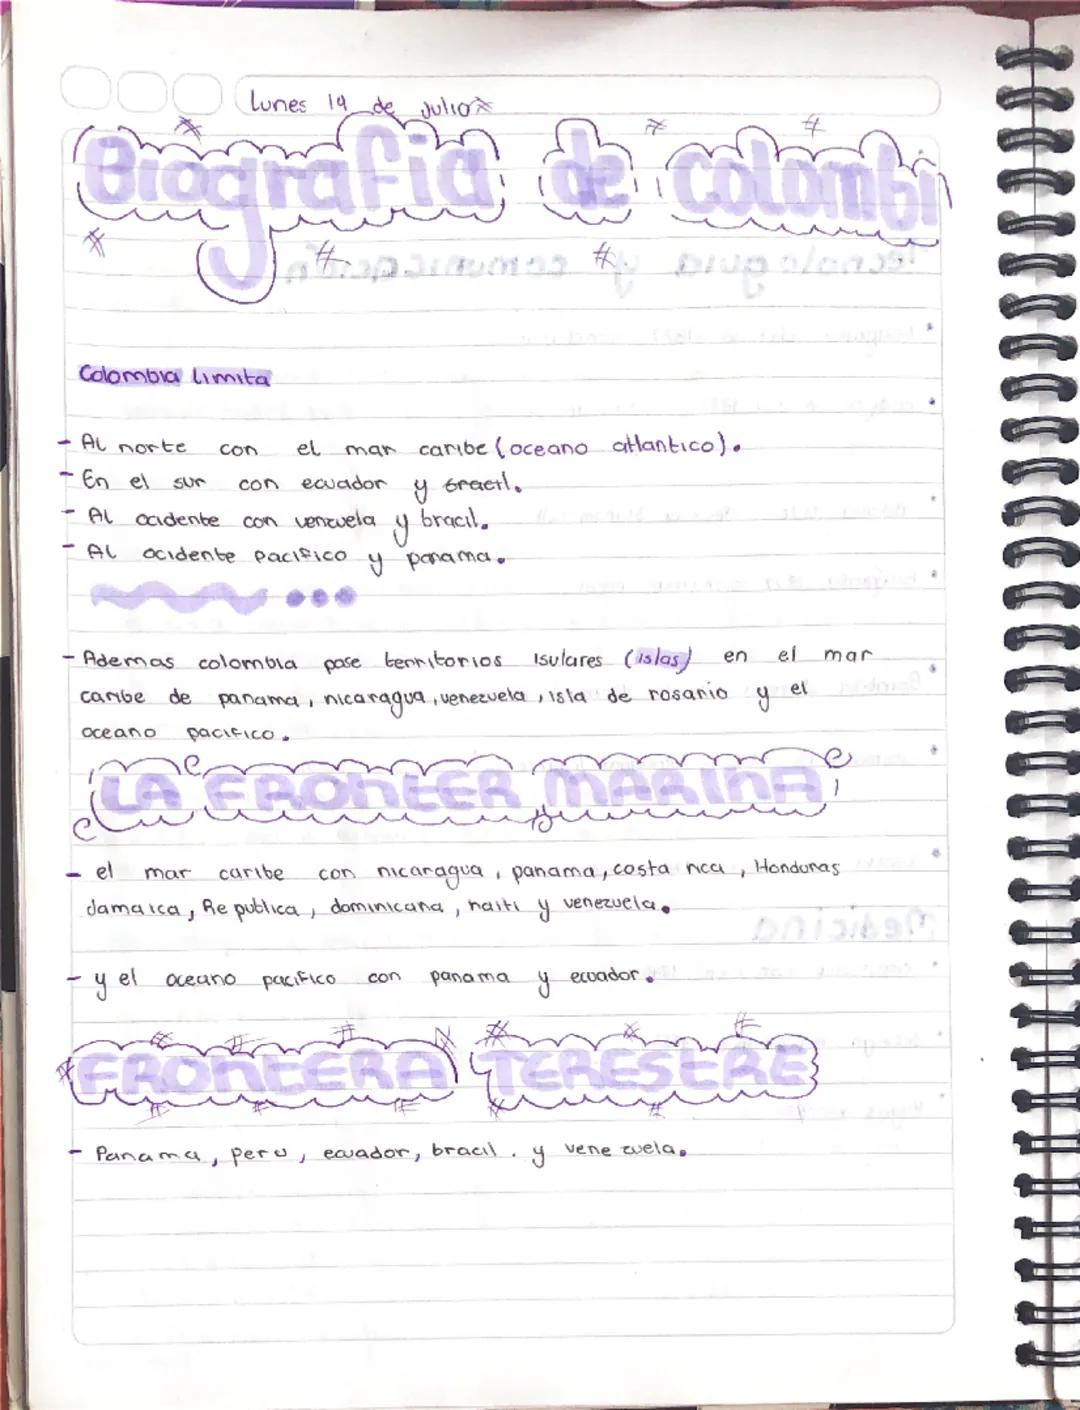 Lunes 19 de Julio
Biografia de colombi
Colombia limita
- AL norte con el mar caribe (oceano atlantico).
- En el sur con ecuador y bracil.
- AL ocidente con venzuela y bracil.
- AL ocidente pacifico y panama.
- Ademas colombia pose territorios isulares (islas) en el mar
caribe de panama, nicaragua, venezuela, isla de rosario y el
oceano pacifico.
LA FRONTER MARINA
- el mar caribe con nicaragua, panama, costa rica, Honduras
Jamaica, Republica, dominicana, haiti y venezuela.
- y el oceano pacifico con panama y ecuador.
FRONTERA TERESTRE
- Panama, peru, ecuador, bracil. y venezuela.